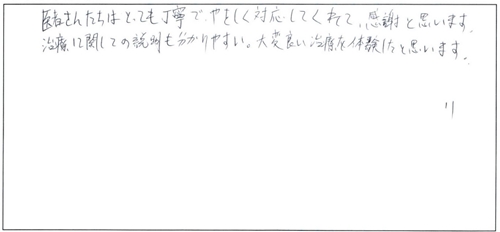 医者さんたちはとっても丁寧で、やさしく対応してくれて、感謝と思います。
治療に関しての説明も分かりやすい。大変良い治療を体験したと思います。